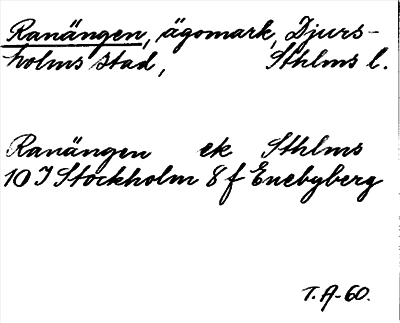 Ranängen, ägomark, Djurs-
holms stad, Sthlms l.
Ranängen ek Sthlms
10 I Stockholm 8 f Enebyberg
T. A-60.